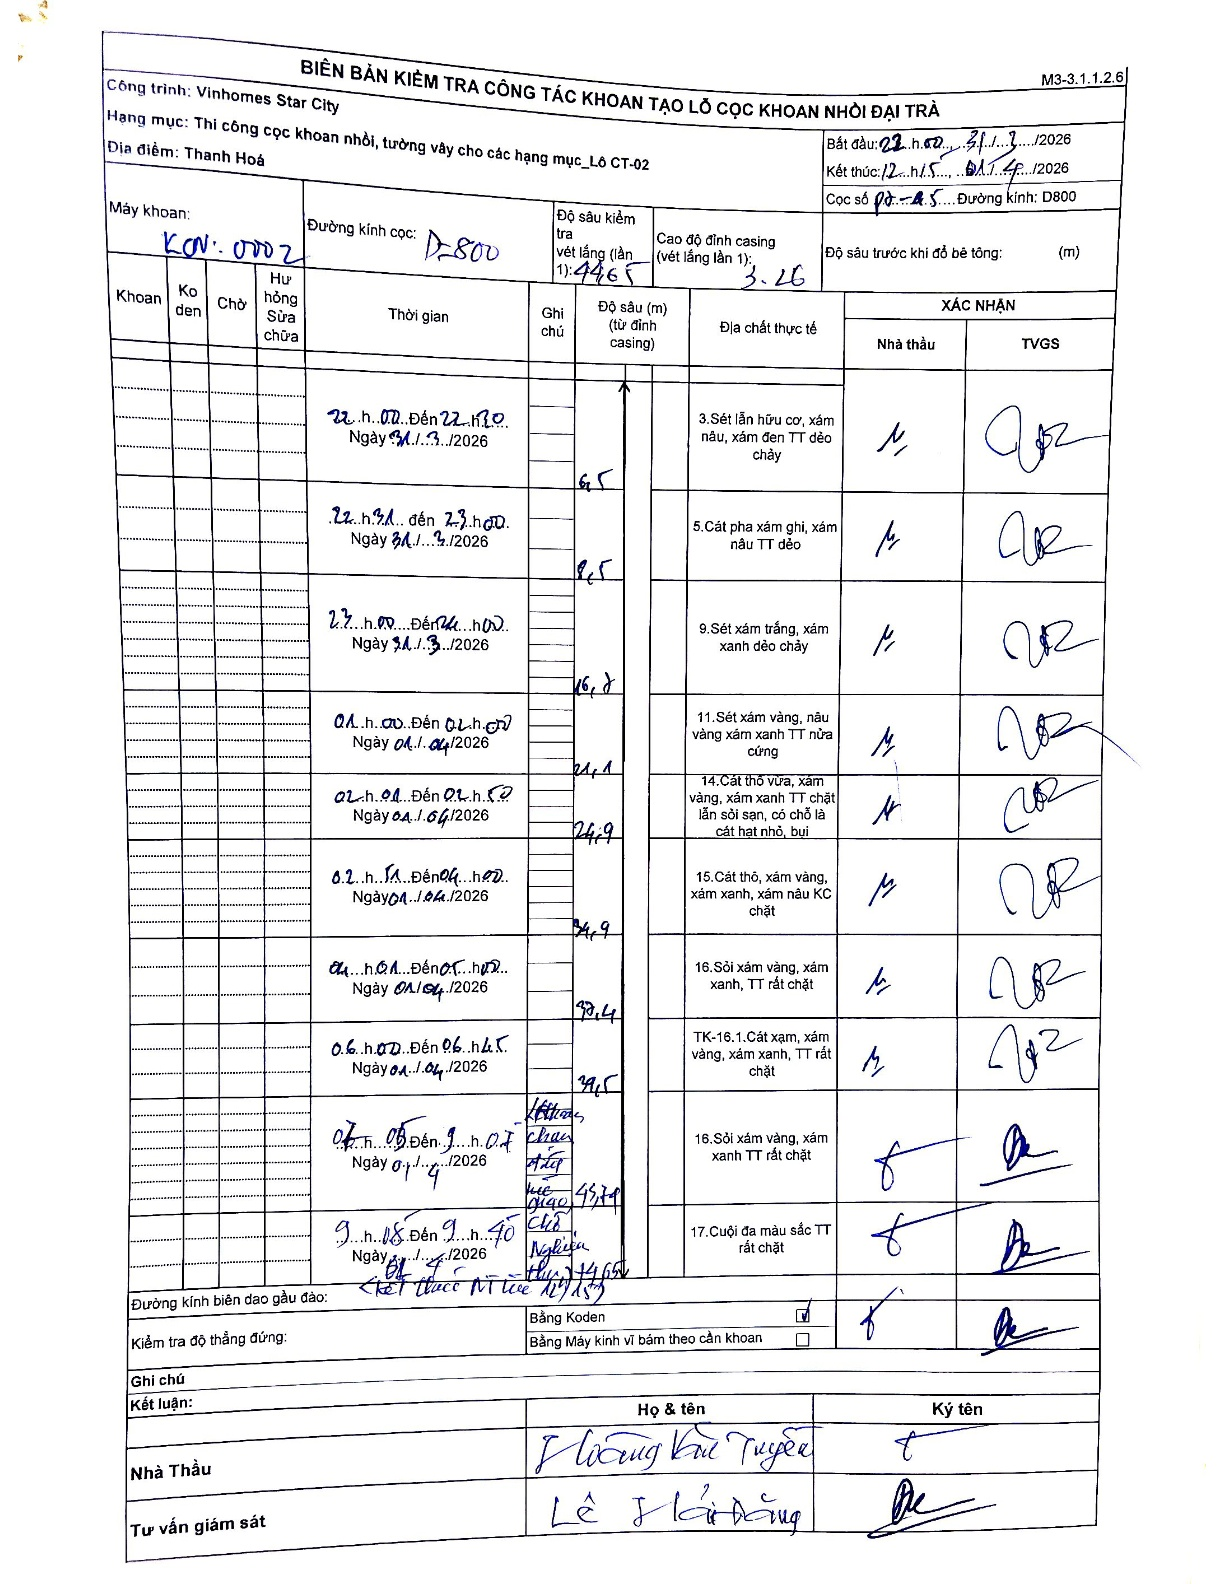 M3-3.1.1.2.6
BIÊN BẢN KIỂM TRA CÔNG TÁC KHOAN TẠO LỖ CỌC KHOAN NHỒI ĐẠI TRÀ
Công trình: Vinhomes Star City
Hạng mục: Thi công cọc khoan nhồi, tường vây cho các hạng mục_Lô CT-02
Địa điểm: Thanh Hoá
Bắt đầu: 22 h 00, 31/3/2026
Kết thúc: 12 h 15, 01/4/2026
Cọc số Đường kính: D800
Máy khoan:
KCN: 0002
Đường kính cọc: D=800
Độ sâu kiểm
tra
vét lắng (lần
1): 44,65
Cao độ đỉnh casing
(vét lắng lần 1):
3.26
Độ sâu trước khi đổ bê tông: (m)
Khoan
Ko
den
Chờ
Hư
hỏng
Sửa
chữa
Thời gian
Ghi
chú
Độ sâu (m)
(từ đỉnh
casing)
Địa chất thực tế
XÁC NHẬN
Nhà thầu
TVGS
22 h 00 Đến 22 h 30
Ngày 31/3/2026
6,5
3.Sét lẫn hữu cơ, xám
nâu, xám đen TT dẻo
chảy
22 h 31 đến 23 h 00
Ngày 31/3/2026
8,5
5.Cát pha xám ghi, xám
nâu TT dẻo
23 h 00 Đến 24 h 00
Ngày 31/3/2026
9.Sét xám trắng, xám
xanh dẻo chảy
01 h 00 Đến 02 h 00
Ngày 01/04/2026
21,1
11.Sét xám vàng, nâu
vàng xám xanh TT nửa
cứng
02 h 01 Đến 02 h 50
Ngày 01/04/2026
24,9
14.Cát thô vừa, xám
vàng, xám xanh TT chặt
lẫn sỏi sạn, có chỗ là
cát hạt nhỏ, bụi
02 h 51 Đến 04 h 00
Ngày 01/04/2026
34,9
15.Cát thô, xám vàng,
xám xanh, xám nâu KC
chặt
04 h 01 Đến 05 h 00
Ngày 01/04/2026
37,4
16.Sỏi xám vàng, xám
xanh, TT rất chặt
06 h 00 Đến 06 h 45
Ngày 01/04/2026
39,5
TK-16.1.Cát xạm, xám
vàng, xám xanh, TT rất
chặt
07 h 05 Đến 9 h 07
Ngày 01/4/2026
43,74
16.Sỏi xám vàng, xám
xanh TT rất chặt
9 h 08 Đến 9 h 40
Ngày 01/4/2026
Chờ
Nghiệm
thu
44,65
17.Cuội đa màu sắc TT
rất chặt
Đường kính biên dao gầu đào:
Kết thúc NT lúc 12h15
Kiểm tra độ thẳng đứng:
Bằng Koden
Bằng Máy kinh vĩ bám theo cần khoan
Ghi chú
Kết luận:
Họ & tên
Ký tên
Nhà Thầu
Hoàng Văn Tuyền
Tư vấn giám sát
Lê Hải Đăng